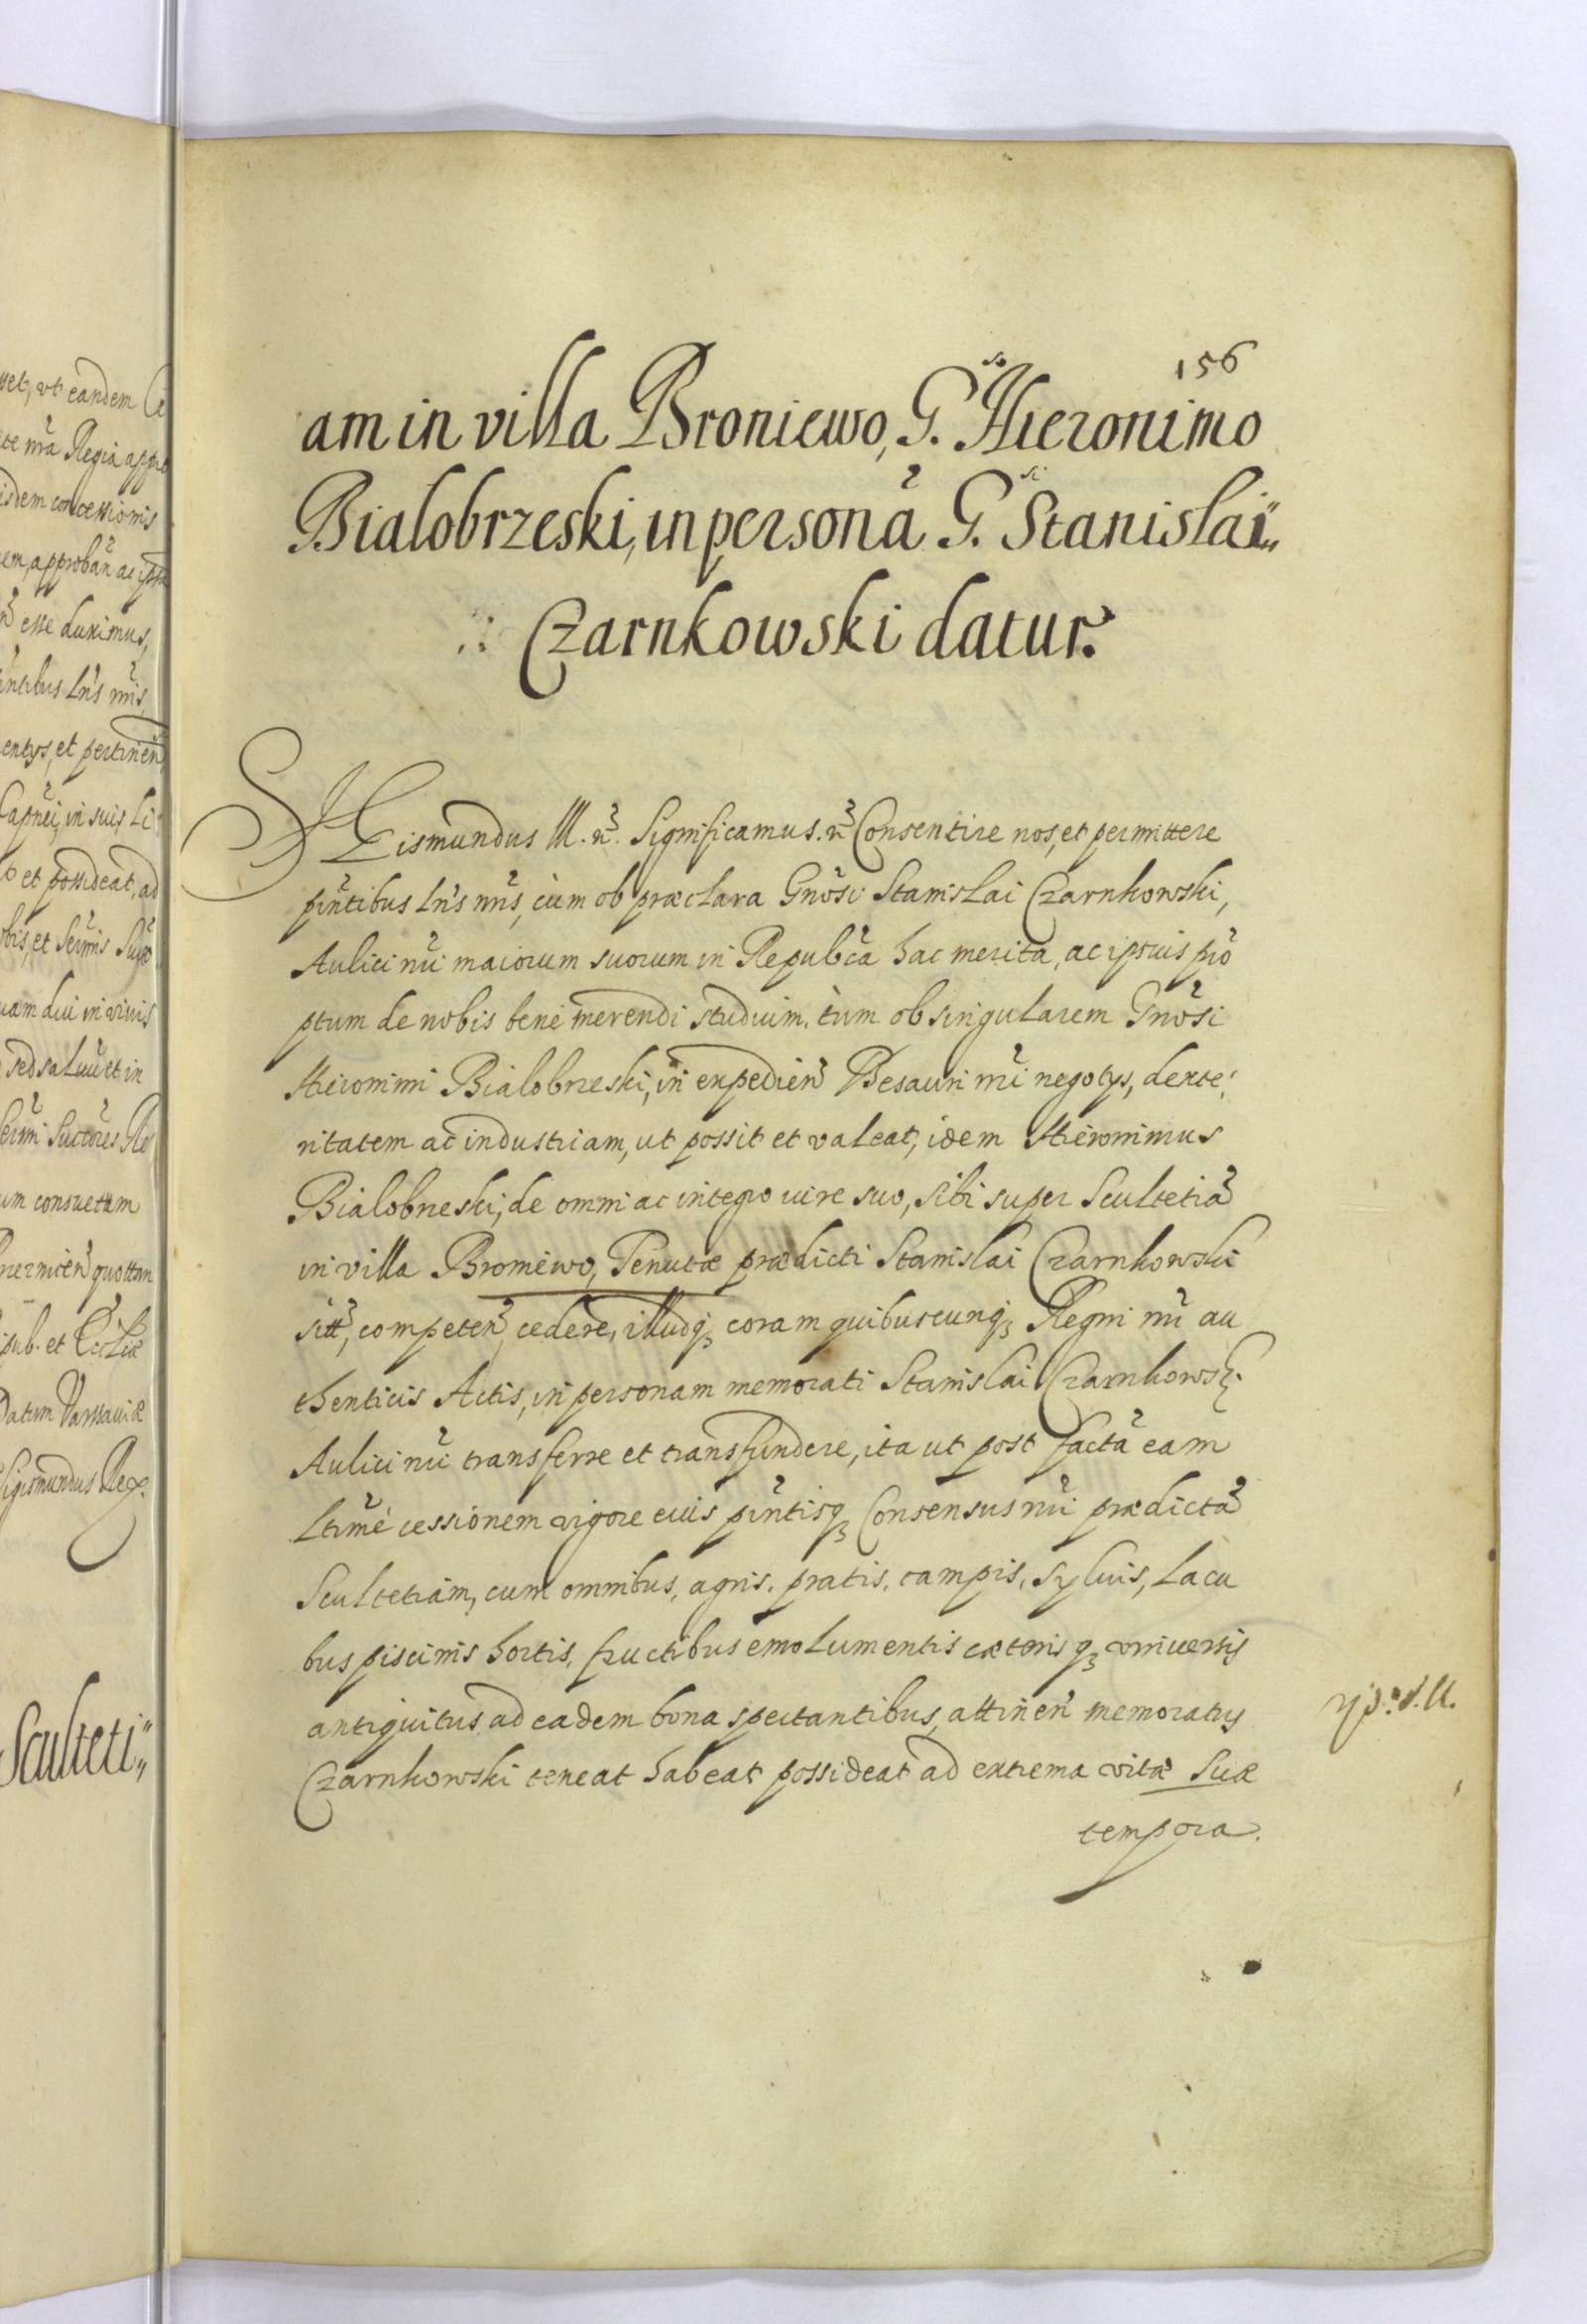 156
am in villa Broniewo, G. so Hieronimo
Bialobrzeski, in personã G. si Stanislai„
Czarnkowski datur.
SIGismundus III. ñ. Significamus. ñ Consentire nos, et permittere
pñtibus lrĩs nrĩs, cùm ob præclara Gnõsi Stanislai Czarnkowski,
Aulici nrĩ maiorum suorum in Republcã hac merita, ac ipsuis prõ
ptum de nobis benè merendi studium. tùm ob singularem Gnõsi
Hieronimi Bialobrzeski, in expedieñ Thesauri nrĩ negotys, dexte,
ritatem ac industriam, ut possit et valeat, idem Hieronimus
Bialobrzeski, de omni ac integro iure suo, sibi super Scultetiã
in villa Broniewo, Tenutæ prædicti Stanislai Czarnkowski
sitt̃, competeñ, cedere, illudq3 coram quibuscunq3 Regni nrĩ au
thenticis Actis, in personam memorati Stanislai Czarnkowsk.
Aulici nrĩ transferre et transfundere, ita ut post factã eam
ltimẽ cessionem vigore eius pñtisq3 Consensus nrĩ prædictã
Scultetiam, cum omnibus, agris, pratis, campis, syluis, Lacu
bus piscinis hortis, fructibus emolumentis cæterisq3 vniuersis
antiquitus ad eadem bona spectantibus, attineñ memoratus
Czarnkowski teneat habeat possideat ad extrema vitæ suæ
tempora.
sset, vt eandem
te nrã Regia appro
isdem concessionis
em, approbañ ac ipsã
esse duximus,
ntibus lrĩs nrĩs,
entys, et pertineñ
Capnei, in suis Li
et possideat, ad
obis, et Sermis Succ
uam diu in viuis
sed saluũ et in
Sermi Suctores Re
um consuetam
quottan
ipub. et Eccliæ
Datum Varssauiæ
Sigismundus Rex.
Sculteti„